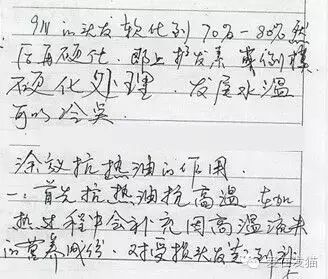 91 的头发软化到70%-80%然
后再硬化。即上护发素 或倒模
硬化处理。发展水温
可以冷臭
涂效抗热油的作用.
一. 首先抗热油抗高温 在加
热过程中会补充因高温流失
的营养成份。对受损头发达到补